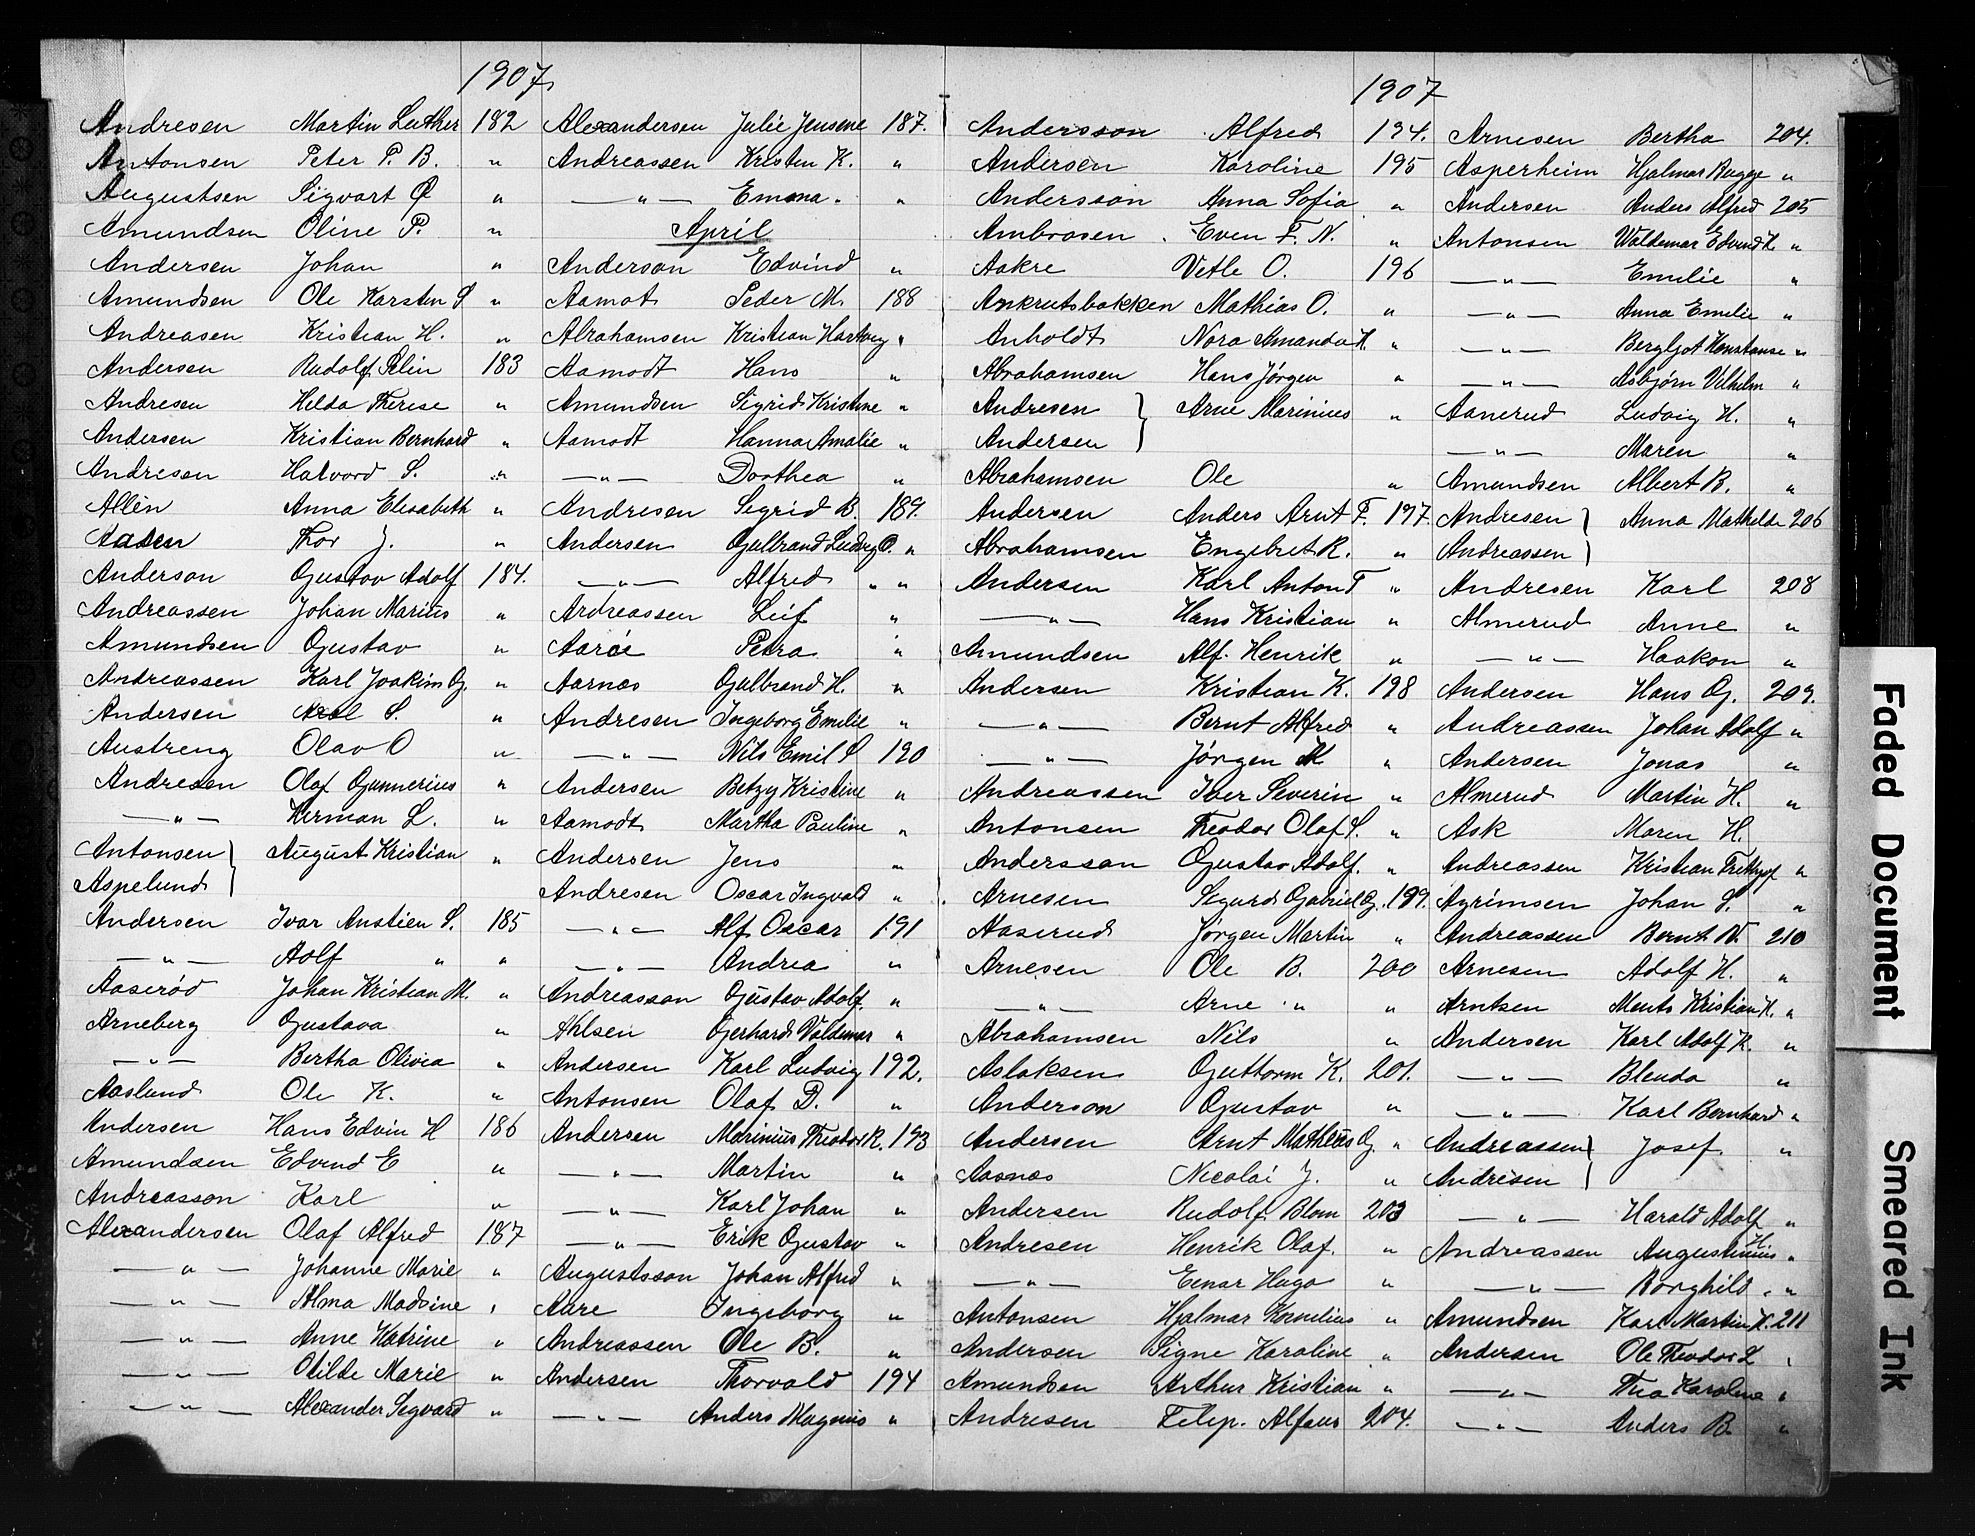 1907
Andresen Martin Luther 182
Antonsen Peter P. B. "
Augustsen Sigvart Ø "
Amundsen Oline P. "
Andersen Johan "
Amundsen Ole Karsten S "
Andreasen Kristian H. "
Andersen Rudolf Elin 183
Andresen Helda Therese "
Andersen Kristian Bernhard "
Andresen Halvord S. "
Allén Anna Elisabeth "
Aasen Thor J. "
Anderson Gustav Adolf 184.
Andreassen Johan Marius "
Amundsen Gustav "
Andreassen Karl Joakim G. "
Andersen Axel S. "
Austreng Olav O "
Andresen Olaf Gunnerius "
— " — Herman L. "
Antonsen } August Kristian "
Aspelund }
Andersen Ivar Anstien S. 185
— " — Adolf " "
Aaserød Johan Kristian M. "
Arneberg Gustava "
— " — Bertha Olivia "
Aaslund Ole K. "
Andersen Hans Edvin H 186
Amundsen Edvind E "
Andreasson Karl "
Alexandersen Olaf Alfred 187
— " — Johanne Marie "
— " — Alma Madsine "
— " — Anne Katrine "
— " — Otilde Marie "
— " — Alexander Segvard "
Alexandersen Julie Jensene 187.
Andreassen Kristen K. "
— " — Emma. "
April
Anderson Edvind "
Aamot Peder M. 188
Abrahamsen Kristian Hartvig "
Aamodt Hans "
Amundsen Sigrid Kristine "
Aamodt Hanna Amalie "
— " — Dorthea "
Andresen Sigrid B. 189.
Andersen Gulbrand Ludvig O. "
— " — Alfred "
Andreassen Leif "
Aarøe Petra "
Aarnes Gulbrand H. "
Andresen Ingeborg Emilie "
— " — Nils Emil S 190
Andersen Betzy Kristine "
Aamodt Martha Pauline "
Andersen Jens "
Andresen Oscar Ingvald "
— " — Alf Oscar 191
— " — Andrea "
Andreasson Gustav Adolf. "
Ahlsen Gerhard Valdemar "
Andersen Karl Ludvig 192.
Antonsen Olaf D. "
Andersen Marinius Theodor K. 193
— " — Martin "
— " — Karl Johan "
— " — Erik Gustav "
Augustsson Johan Alfred "
Aare Ingeborg "
Andreassen Ole B. "
Andersen Thorvald 194
— " — Anders Magnus "
1907
Andersson Alfred 194.
Andersen Karoline 195
Andersson Anna Sofia "
Ambrosen Even F. N. "
Aakre Vetle O. 196
Ankrutsbakken Mathias O. "
Anholdt Nora Amanda H. "
Abrahamsen Hans Jørgen "
Andresen } Arne Marinius "
Andersen }
Abrahamsen Ole "
Andersen Anders Arnt F. 197.
Abrahamsen Engebret R. "
Andersen Karl Anton T "
— " — Hans Kristian "
Amundsen Alf. Henrik "
Andersen Kristian K. 198
— " — Bernt Alfred "
— " — Jørgen M "
Andreassen Iver Severin "
Antonsen Theodor Olaf S. "
Andersson Gustav Adolf. "
Arnesen Sigurd Gabriel G. 199.
Aaserud Jørgen Martin "
Arnesen Ole B. 200
— " — Arne " "
Abrahamsen Nils "
Aslaksen Guttorm K. 201.
Anderson Gustav "
Andersen Arnt Matheus G. "
Aasnæs Nicolai J. "
Andersen Rudolf Blom 203
Andresen Henrik Olaf. "
— " — Einar Hugo "
Antonsen Hjalmar Kornelius "
Andersen Signe Karoline "
Amundsen Arthur Kristian "
Andresen Filip. Alfeus 204.
Arnesen Bertha 204.
Asperheim Hjalmar Bugge "
Andersen Anders Alfred 205
Antonsen Waldemar Edvind H. "
— " — Emilie "
— " — Anna Emilie "
— " — Bergljot Konstanse "
— " — Asbjørn Vilhelm "
Aanerud Ludvig H. "
— " — Maren "
Amundsen Albert B. "
Andresen } Anna Mathilde 206
Andreassen }
Andresen Karl 208
Almerud Anne "
— " — Haakon "
Andersen Hans G. 209.
Andreassen Johan Adolf "
Andersen Jonas "
Almerud Martin H. "
Ask Maren H.
Andreassen Kristian "
Agrimsen Johan S. "
Andreassen Bernt N. 210
Arnesen Adolf H. "
Arntsen Ments Kristian H. "
Andersen Karl Adolf K. "
— " — Blenda "
— " — Karl Bernhard "
Andreassen } Josef. "
Andresen }
— " — Harald Adolf "
Andreassen Augustinius H. "
— " — Borghild "
Amundsen Karl Martin K. 211
Andersen Ole Theodor L "
— " — Thea Karoline "
— " — Anders B. "
Faded Document
Smeared Ink